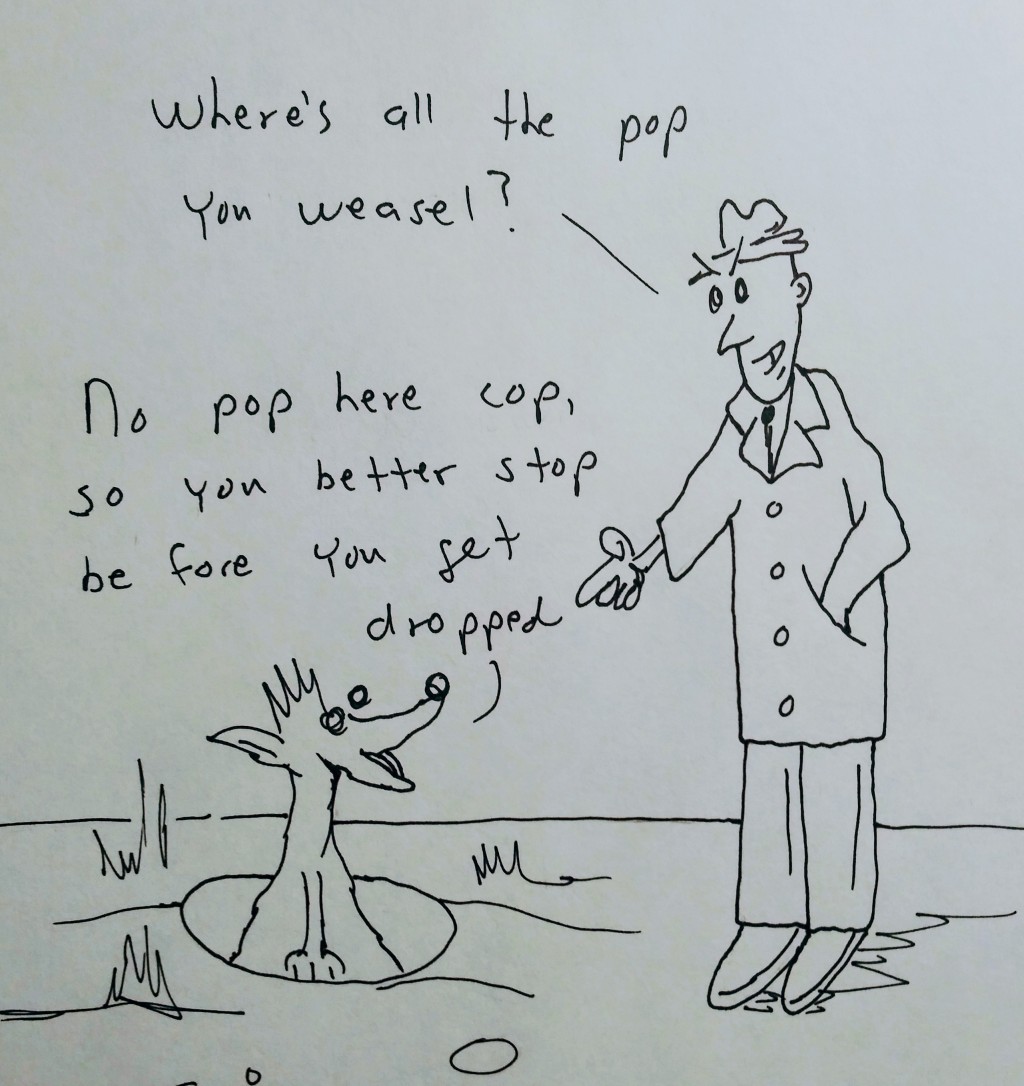 Where's all the pop
you weasel?
No pop here cop,
so you better stop
before you get
dropped